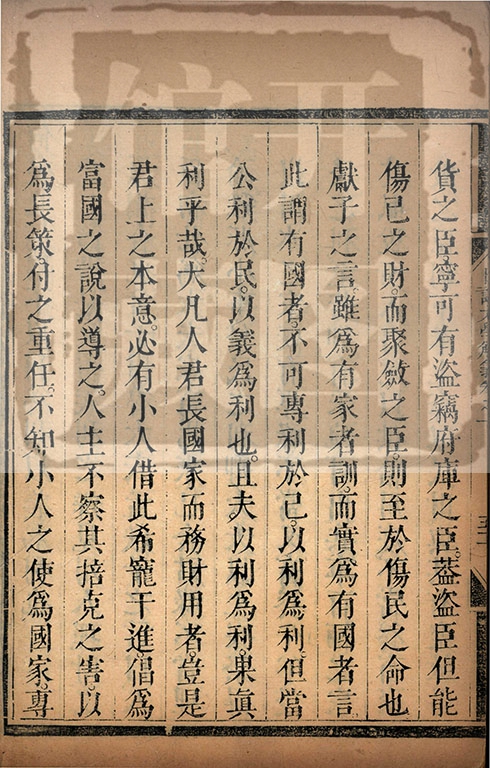 貨之臣寧可有盜竊府庫之臣。葢盜臣但能
傷己之財。而聚斂之臣。則至於傷民之命也
獻子之言。雖爲有家者訓。而實爲有國者言
此謂有國者。不可專利於己。以利爲利。但當
公利於民。以義爲利也。且夫。以利爲利。果眞
利乎哉。大凡人君長國家而務財用者。豈是
君上之本意。必有小人借此希寵干進。倡爲
富國之說以導之。人主不察其掊克之害。以
爲長策。付之重任。不知小人之使爲國家。專